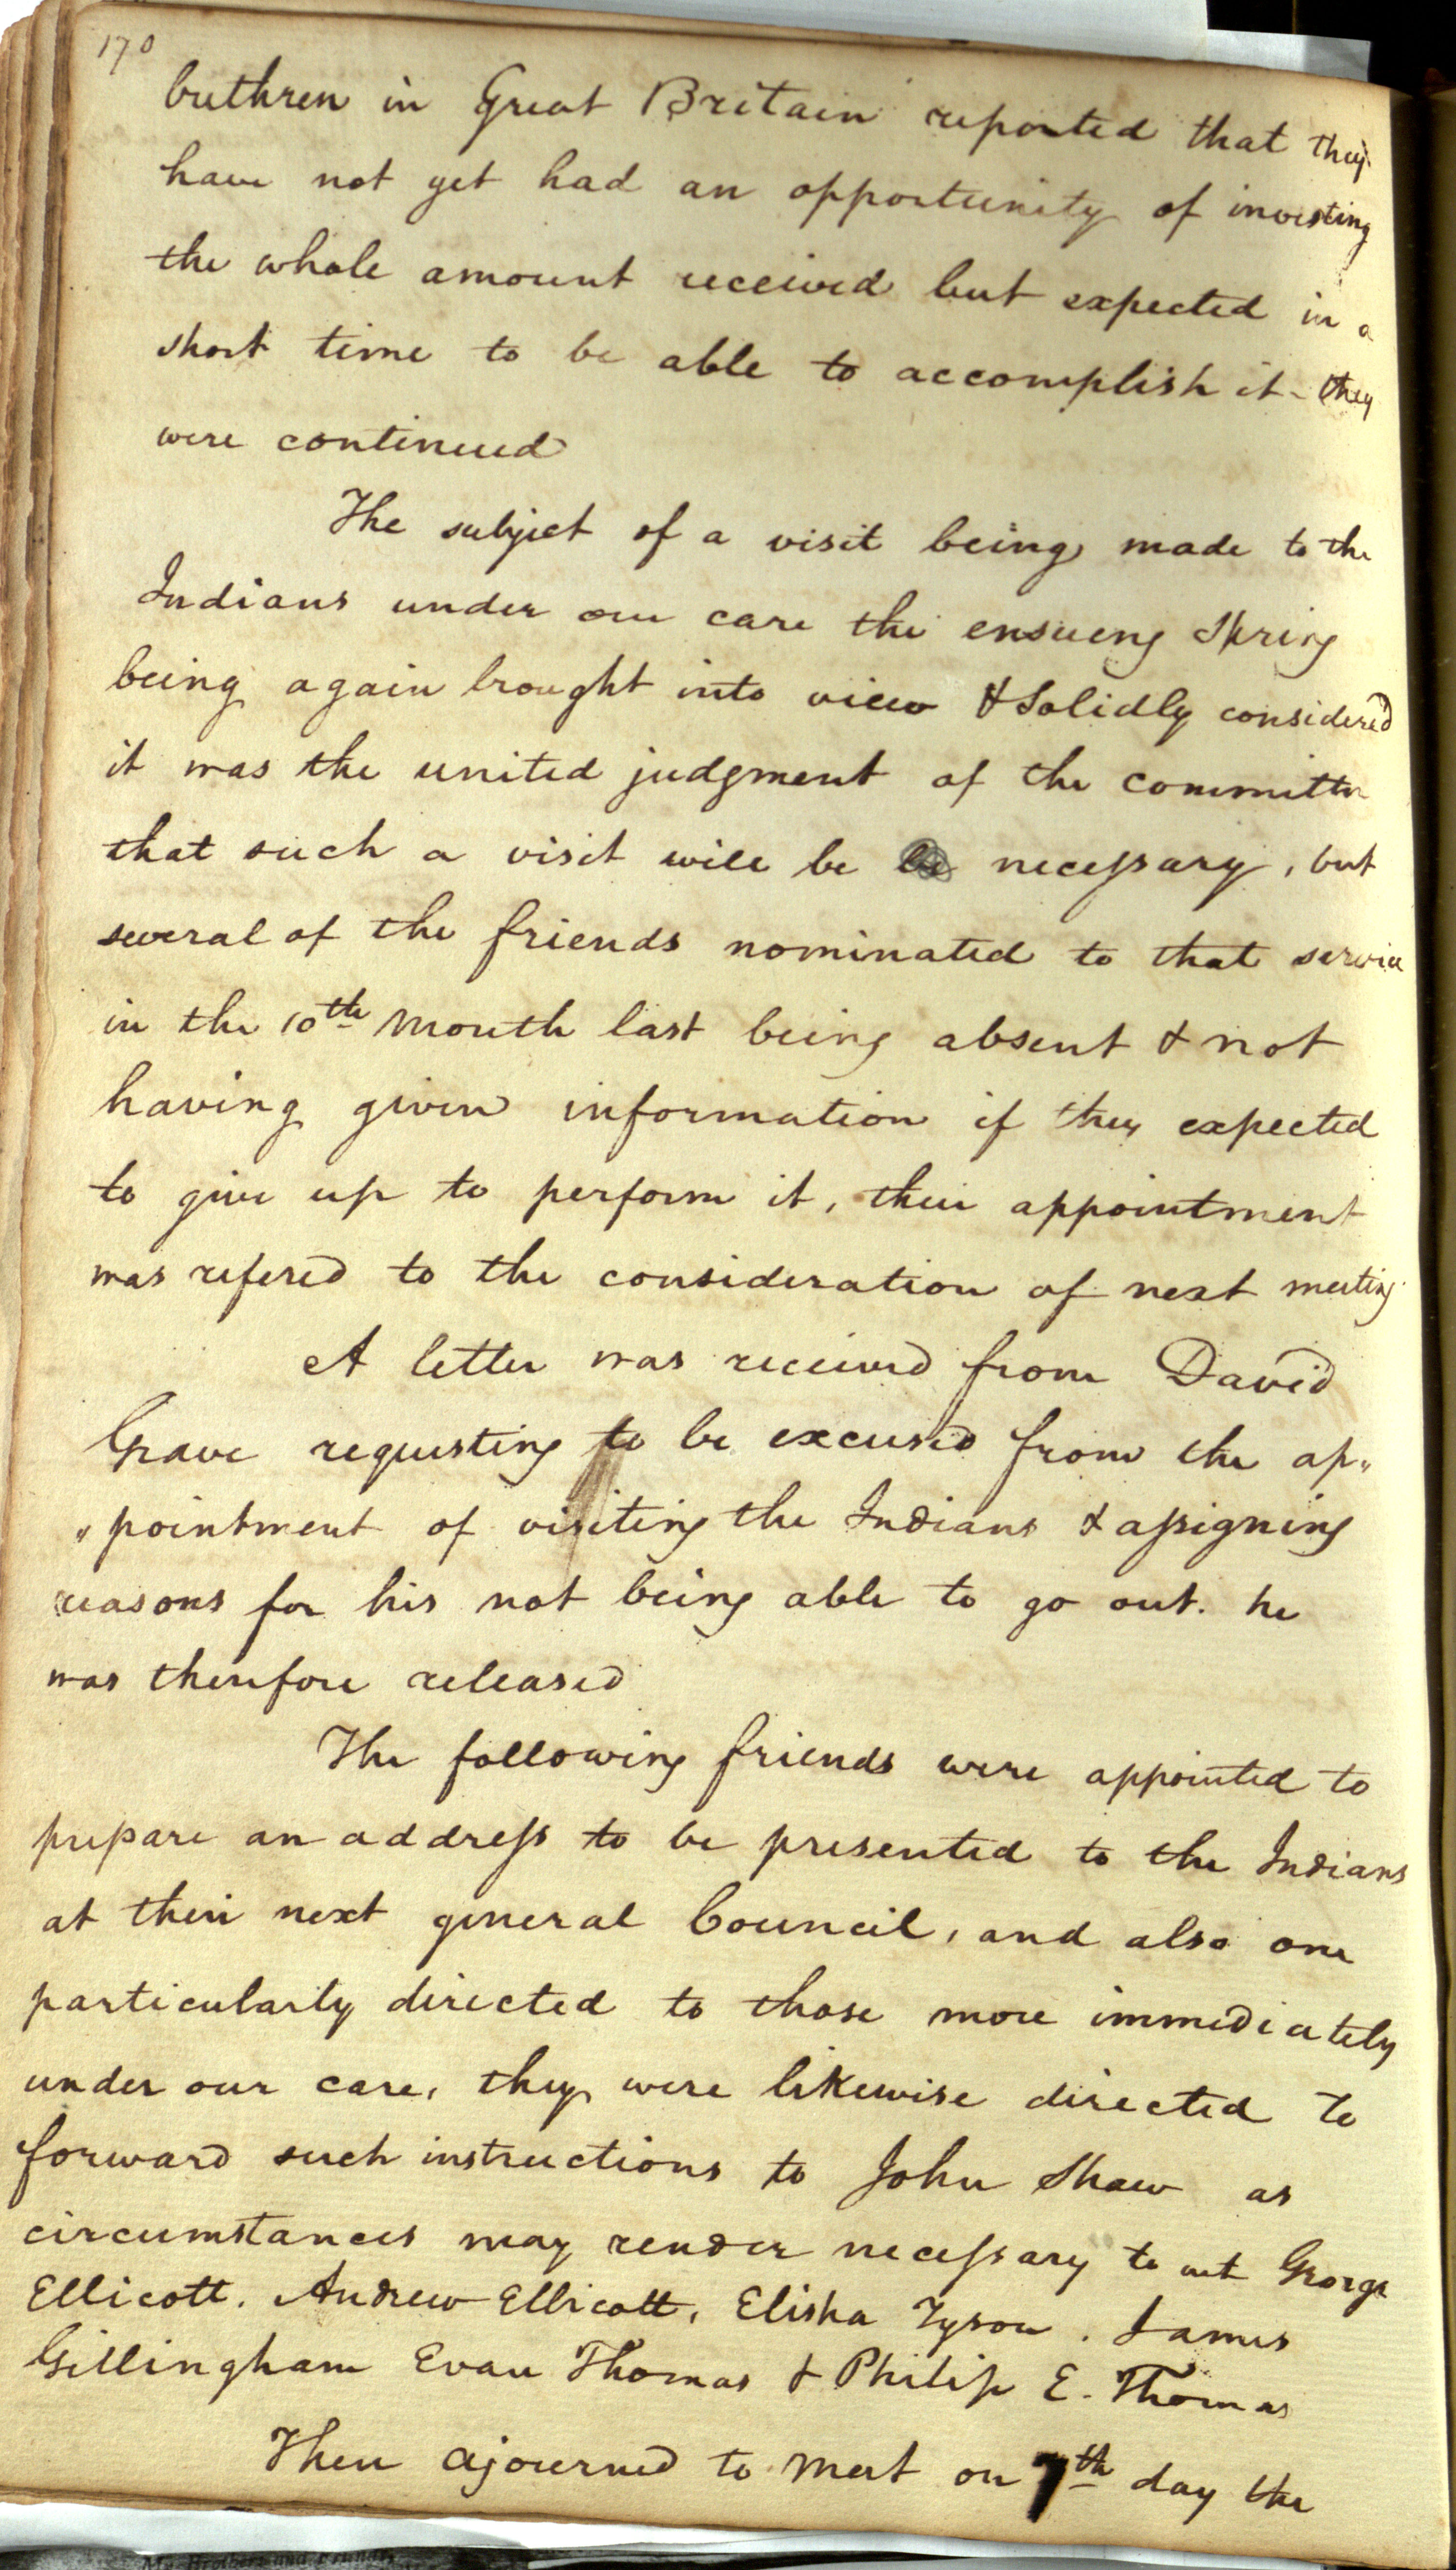 170
brethren in Great Britain reported that they
have not yet had an opportunity of investing
the whole amount received but expected in a
short time to be able to accomplish it - they
were continued
The subject of a visit being made to the
Indians under our care the ensueng Spring
being again brought into view & Solidly considered
it was the united judgment of the committee
that such a visit will be be necessary, but
several of the friends nominated to that service
in the 10th Month last being absent & not
having given information if they expected
to give up to perform it, their appointment
was refered to the consideration of next meeting
A letter was received from David
Grave requesting to be excused from the ap„
„pointment of visiting the Indians & assigning
reasons for his not being able to go out. he
was therefore released
The following friends were appointed to
prepare an address to be presented to the Indians
at their next general Council, and also one
particularly directed to those more immediately
under our care, they were likewise directed to
forward such instructions to John Shaw as
circumstances may render necessary to wit George
Ellicott. Andrew Ellicott, Elisha Tyson. James
Gillingham Evan Thomas & Philip E. Thomas
Then ajourned to meet on 7th day the